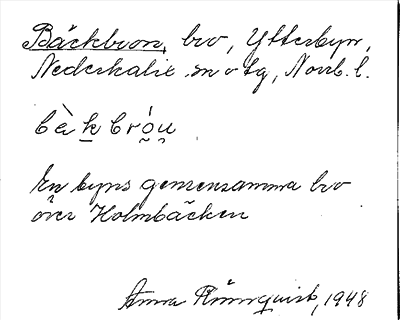 Bäckbron, bro, Ytterbyn,
Nederkalix sn o tg, Norrb. l.
bàkbróu
En byns gemensamma bro
över Holmbäcken
Anna Rönnquist, 1948